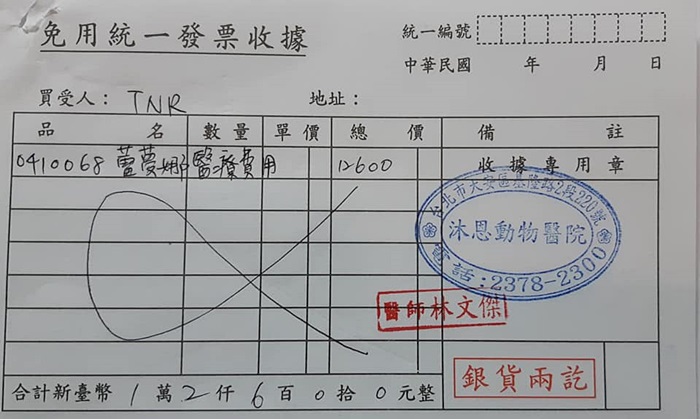 免用統一發票收據
統一編號
中華民國 年 月 日
買受人： TNR 地址：
品 名 數量 單價 總 價 備 註
0410068 蕾蔓娜 醫療費用 12600 收據專用章
台北市大安區基隆路2段220號
沐恩動物醫院
電話：2378-2300
醫師林文傑
銀貨兩訖
合計新臺幣 1 萬 2 仟 6 百 0 拾 0 元整